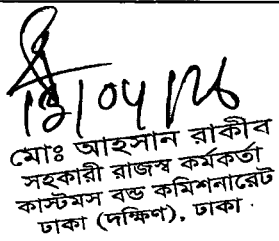 মোঃ আহসান রাকীব
সহকারী রাজস্ব কর্মকর্তা
কাস্টমস বন্ড কমিশনারেট
ঢাকা (দক্ষিণ), ঢাকা